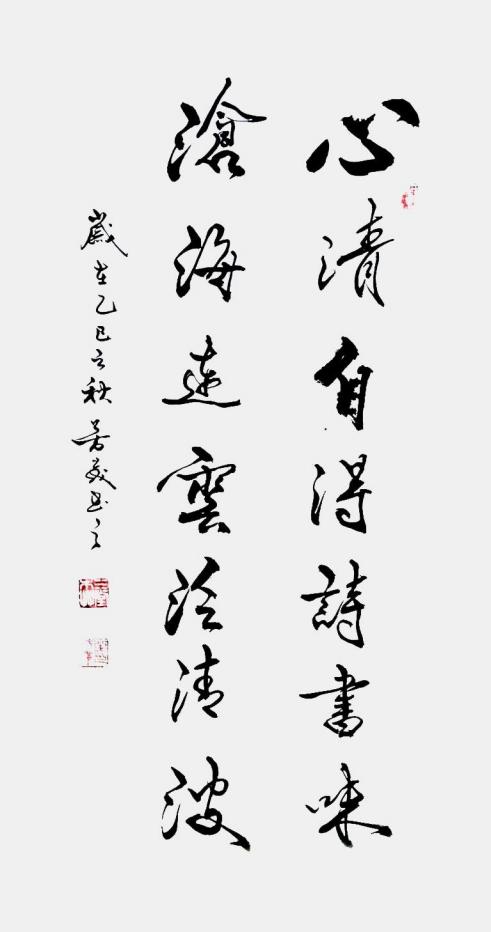 心清自得詩書味
滄海遠雲泛清波
歲在乙巳之秋芳義書之